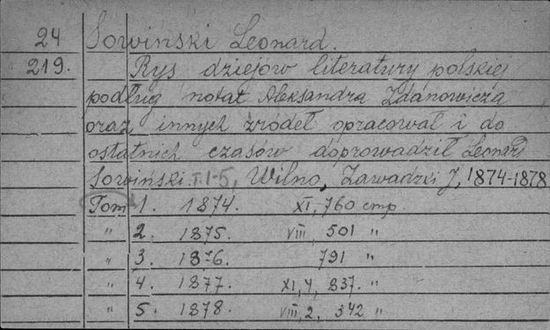 24 Sowiński Leonard.
219. Rys dziejów literatury polskiej
podług notat Aleksandra Zdanowicza
oraz innych źródeł opracował i do
ostatnich czasów doprowadził Leonard
Sowiński т. 1-5, Wilno, Zawadzki J, 1874-1878
Tom 1. 1874. XI, 760 cmp.
" 2. 1875. VIII, 501 "
" 3. 1876. 791 "
" 4. 1877. XI, 4, 837. "
" 5. 1878. VIII, 2, 342 "